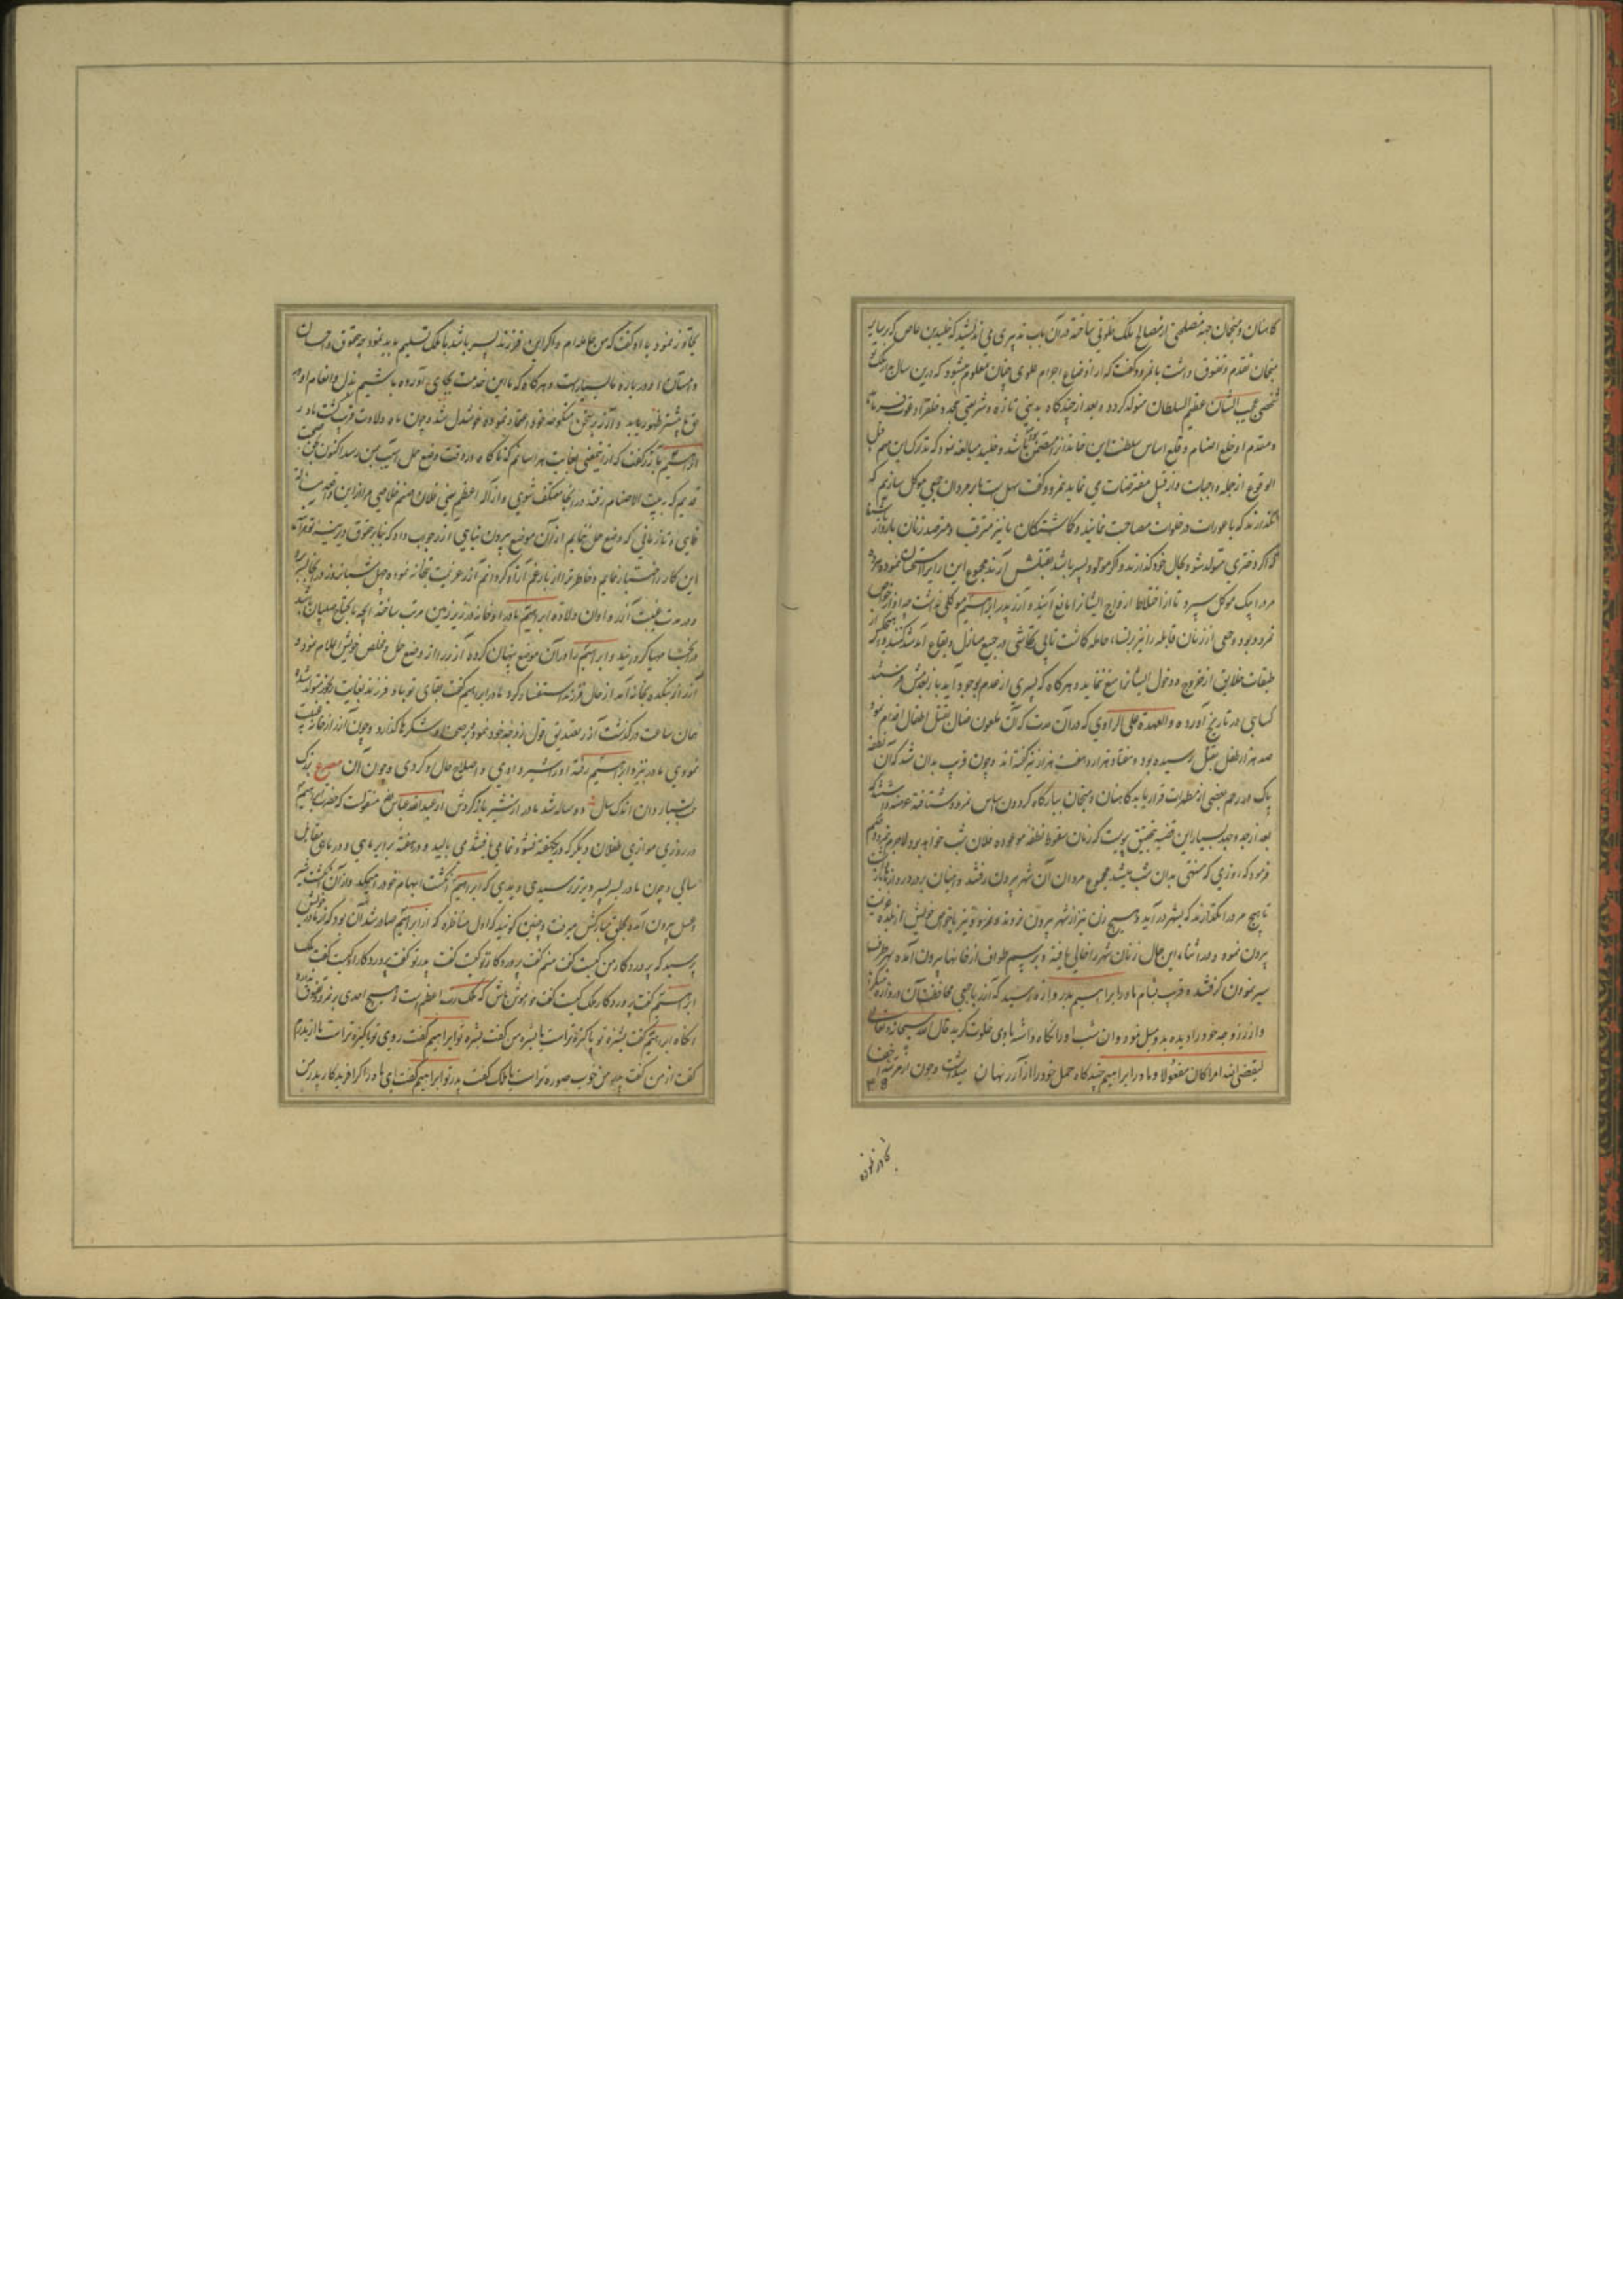 کاهنان و منجمان جهة مصلحتی از مصالح ملک خلوتی ساخته در آن باب تدبیری می اندیشید که خلید بن عاص که بر سایر
منجمان تقدم و تفوق داشت با نمرود گفت که از اوضاع اجرام علوی چنان معلوم میشود که درین سال در ملک
شخصی عجیب الشان عظیم السلطان متولد گردد و بعد از چندگاه بدینی تازه و شریعتی مجدد خلق را دعوت
و مقدم او خلع اصنام و قلع اساس سلطنت این خاندان را متضمن باشد و خلید مبالغه نمود که تدارک این مهم قبل
الوقوع از جمله واجبات و از قبیل مفترضات می نماید نمرود گفت سهل است ما بر مردان جمعی موکل سازیم که
نگذارند که با عورات در خلوات مصاحبت نمایند و گماشتگان ما نیز مترقب و مترصد زنان باردار باشند
تا اگر دختری متولد شود بحال خود گذارند و اگر مولود پسر باشد بقتلش آرند مجموع این رای را استحسان نموده هر ده
مرد را بیک موکل سپرد تا از اختلاط ازواج ایشانرا مانع آیند و آزر پدر ابراهیم موکلی نداشت چه او از خواص
نمرود بود و جمعی از زنان قابله را نیز بر نساء حامله گماشت تا بی تحاشی در جمیع منازل و بقاع آمد شد کنند و هیچکس از
طبقات خلایق از خروج و دخول ایشانرا منع ننماید و هرگاه که پسری از عدم بوجود آید باز بعدمش فرستند
کسایی در تاریخ آورده والعهدة علی الراوی که در آن مدت که آن ملعون ضال بقتل اطفال اقدام نمود
صد هزار طفل بقتل رسیده بود و هفتاد هزار و هفت هزار نیز گفته اند و چون قریب بدان شد که آن نطفه
پاک در رحم بعضی از مطهرات قرار یابد کاهنان و منجمان ببارگاه گردون اساس نمرود شتافته عرضه داشتند که
بعد از جد و جهد بسیار این قضیه بتحقیق پیوست که زمان سقوط نطفه موعوده فلان شب خواهد بود لاجرم نمرود حکم
فرمود که روزی که منتهی بدان شب میشد مجموع مردان آن شهر بیرون رفتند و امینان بر در دروازها باز داشت
تا هیچ مرد را نگذارند که بشهر در آید و هیچ زن نیز از شهر بیرون نرود و نمرود نیز با خواص خویش از بلده عزیمت
بیرون نمود و در اثناء این حال زنان شهر را خالی یافته و برسم طواف از خانها بیرون آمده بهر طرف
سیر نمودن گرفتند و قریب بشام مادر ابراهیم بدروازه رسید که آزر با جمعی محافظت آن دروازه میکرد
و آزر زوجه خود را دیده بدو میل نمود و آن شب او را نگاه داشته با وی خلوت گزید قال الله سبحانه و تعالی
لیقضی الله امرا کان مفعولا و مادر ابراهیم چندگاه حمل خود را از آزر نهان میداشت و چون از مرتبه اخفا
کار نموده
تجاوز نمود با او گفت که من حامله ام و اگر این فرزند پسر باشد با ملک تسلیم باید نمود چه حقوق و احسان
و امتنان او در باره ما بسیار است و هرگاه که ما این خدمت بجای آورده باشیم بذل و انعام او در
حق ما بیشتر ظهور یابد و آزر بر سخن منکوحه خود اعتماد نموده خوشدل شد و چون ماه ولادت قریب گشت مادر
ابراهیم با آزر گفت که از تتبعی بغایت هراسانم که ناگاه در وقت وضع حمل آسیب بمن رسد اکنون بحق صحبت
قدیم که به بیت الاصنام رفته در آنجا معتکف شوی و از اله اعظم یعنی فلان صنم خلاصی مرا از این واقعه مسألت
نمایی و تا زمانی که وضع حمل ننمایم از آن موضع بیرون نیایی آزر جواب داد که بنابر حقوق دیرینه تو من
این کار را اختیار نمایم و خاطر ترا از بار غم آزاد گردانم آزر عزیمت بتخانه نموده چهل شبانروز در آنجا بسر برد
و در مدت غیبت آزر و اوان ولادة ابراهیم مادر او خانه در زیر زمین مرتب ساخته آنچه ما یحتاج صبیان باشد
در آنجا مهیا گردانید و ابراهیم را در آن موضع پنهان کرده آزر را از وضع حمل و مخلص خویش اعلام نمود و
آزر از بتکده بخانه آمد از حال فرزند استفسار کرد مادر ابراهیم گفت بقای تو باد فرزند بغایت رنجور متولد شده
همان ساعت درگذشت آزر تصدیق قول زوجه خود نمود و بر صحت او شکرها گذارد و چون آزر از خانه غیبت
نمودی مادر بنزد ابراهیم رفته او را شیر دادی و اصلاح حال او کردی و چون آن مصرع بزرگ
بسیار دان اندک سال دو ساله شد مادر از شیر بازگردش از عبد الله عباس رض منقولست که حضرت ابراهیم
در روزی موازی طفلان دیگر که در یکهفته نشو و نما می یافتند می بالید و در هفته برابر ماهی و در ماهی مقابل
سالی و چون مادر بسر پسر دیرتر رسیدی دیدی که ابراهیم انگشت ابهام خود را میمکد و از آن انگشت شیر
و عسل بیرون آمده بحلق مبارکش میرفت و چنین گویند که اول مناظره که از ابراهیم صادر شد آن بود که از مادر خویش
پرسید که پروردگار من کیست گفت منم گفت پروردگار تو کیست گفت پدر تو گفت پروردگار او کیست گفت ملک
ابراهیم گفت پروردگار ملک کیست گفت خاموش باش که ملک رب اعظم است و هیچ احدی بر نمرود تفوق ندارد
آنگاه ابراهیم گفت بشره تو پاکیزه تر است یا بشره من گفت بشره تو ابراهیم گفت روی تو پاکیزه تر است یا از پدرم
گفت از من گفت پدر من خوب صورة تر است یا ملک گفت پدر تو ابراهیم گفت ای مادر اگر آفریدگار پدر من